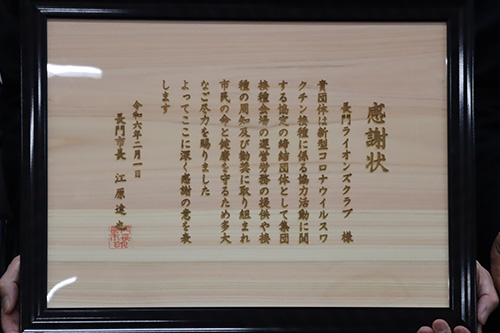 感謝状
長門ライオンズクラブ 様
貴団体は新型コロナウイルスワ
クチン接種に係る協力活動に関
する協定の締結団体として集団
接種会場の運営労務の提供や接
種の周知及び勧奨に取り組まれ
市民の命と健康を守るため多大
なご尽力を賜りました
よってここに深く感謝の意を表
します
令和六年二月一日
長門市長 江原達也